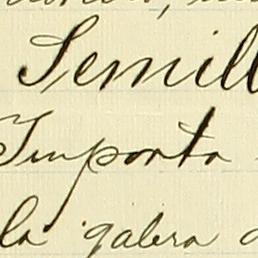 Semill
Importa
la galera